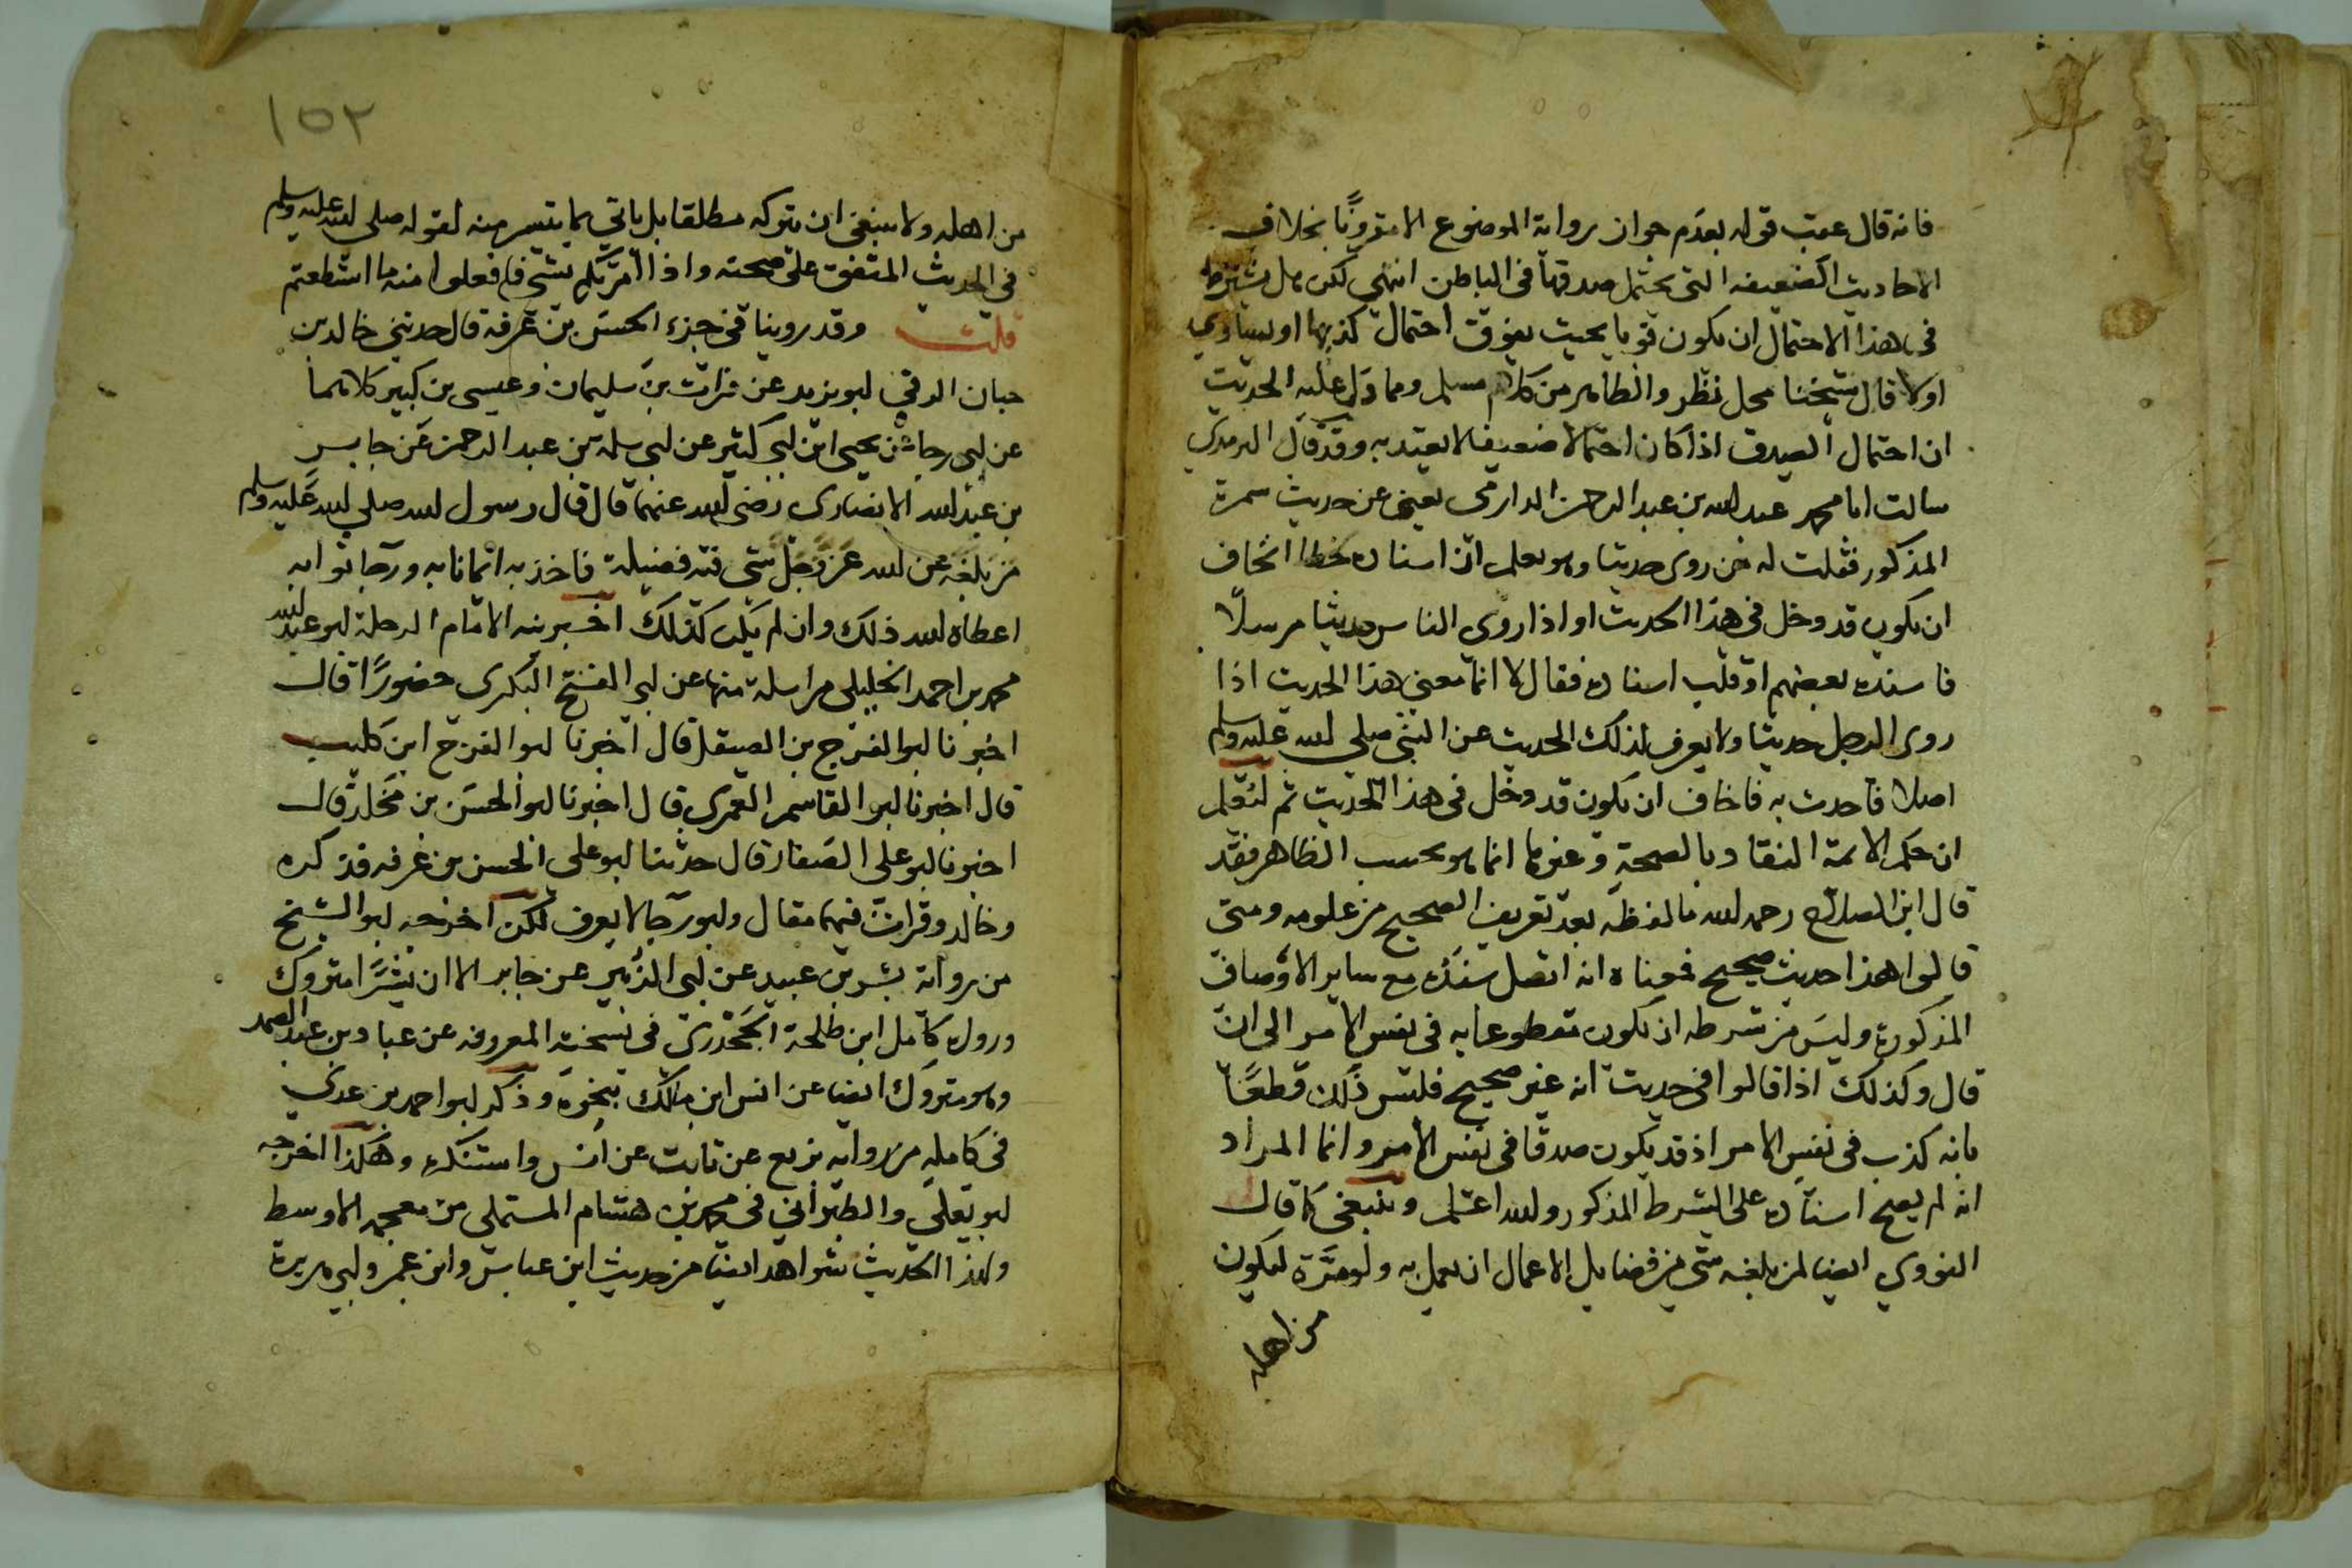 فانه قال عقب قوله بعدم جواز رواية الموضوع الا مقرونًا بخلاف
الاحاديث الضعيفه التي يحتمل صدقها في الباطن انتهي لكن هل يشترط
في هذا الاحتمال ان يكون قويا بحيث يفوق احتمال كذبها او يساوي
اولا قال شيخنا محل نظر والظاهر من كلام مسلم ومما دل عليه الحديث
ان احتمال الصدق اذا كان احتمالا ضعيفا لا يعتد به وقد قال الترمذي
سالت ابا محمد عبد الله بن عبد الرحمن الدارمي يعني عن حديث سمرة
المذكور فقلت له من روي حديثا وهو يعلم ان اسناده خطا اتخاف
ان يكون قد دخل في هذا الحديث او اذا روي الناس حديثا مرسلًا
فاسنده بعضهم او قلب اسناده فقال لا انما معني هذا الحديث اذا
روي الرجل حديثا ولا يعرف لذلك الحديث عن النبي صلي الله عليه وسلم
اصلا فاحدث به فاخاف ان يكون قد دخل في هذا الحديث ثم ليعلم
ان حكم الائمة النقاد بالصحة وغيرها انما هو بحسب الظاهر فقد
قال ابن الصلاح رحمه الله ما لفظه بعد تعريف الصحيح من علومه ومتى
قالوا هذا حديث صحيح فمعناه انه اتصل سنده مع ساير الاوصاف
المذكورة وليس من شرطه ان يكون مقطوعا به في نفس الامر الى ان
قال وكذلك اذا قالوا في حديث انه غير صحيح فليس ذلك قطعًا
بانه كذب في نفس الامر اذ قد يكون صدقا في نفس الامر وانما المراد
انه لم يصح اسناده على الشرط المذكور والله اعلم وينبغي كما قال
النووي ايضا لمن بلغه شي من فضايل الاعمال ان يعمل به ولو مرَّة ليكون
من اهله
١٥٢
من اهله ولا ينبغي ان يتركه مطلقا بل ياتي بما يتيسر منه لقوله صلى الله عليه وسلم
في الحديث المتفق على صحته واذا امرتكم بشي فافعلوا منه ما استطعتم
قلت وقد روينا في جزء الحسن بن عرفة قال حدثني خالد بن
حيان الرقي ابو يزيد عن فرات بن سليمان وعيسى بن كبير كلاهما
عن ابي رجا عن يحيى ابن ابي كثير عن ابي سلمة بن عبد الرحمن عن جابر
بن عبد الله الانصاري رضي الله عنهما قال قال رسول الله صلى الله عليه وسلم
من بلغه عن الله عز وجل شي فيه فضيلة فاخذ به ايمانا به ورجا ثوابه
اعطاه الله ذلك وان لم يكن كذلك اخبرنيه الامام الرحلة ابو عبد الله
محمد بن احمد الخليلي مراسلة منها عن ابي الفتح البكري حضورًا قال
اخبرنا ابو الفرج بن الصيقل قال اخبرنا ابو الفرج ابن كليب
قال اخبرنا ابو القاسم العمري قال اخبرنا ابو الحسن بن مخلد قال
اخبرنا ابو على الصفار قال حدثنا ابو على الحسن بن عرفه فذكره
وخالد وفرات فيهما مقال وابو رجا لا يعرف لكن اخرجه ابو الشيخ
من رواية بشر بن عبيد عن ابي الزبير عن جابر الا ان بشرًا متروك
ورواه كامل ابن طلحة الجحدري في نسخته المعروفه عن عباد بن عبد الصمد
وهو متروك ايضا عن انس ابن مالك بنحوه وذكر ابو احمد بن عدي
في كامله من رواية بزيع عن ثابت عن انس واستنكره وهكذا اخرجه
ابو يعلى والطبراني في محمد بن هشام المستملي من معجمه الاوسط
ولهذا الحديث شواهد ايضا من حديث ابن عباس وابن عمر وابي هريرة